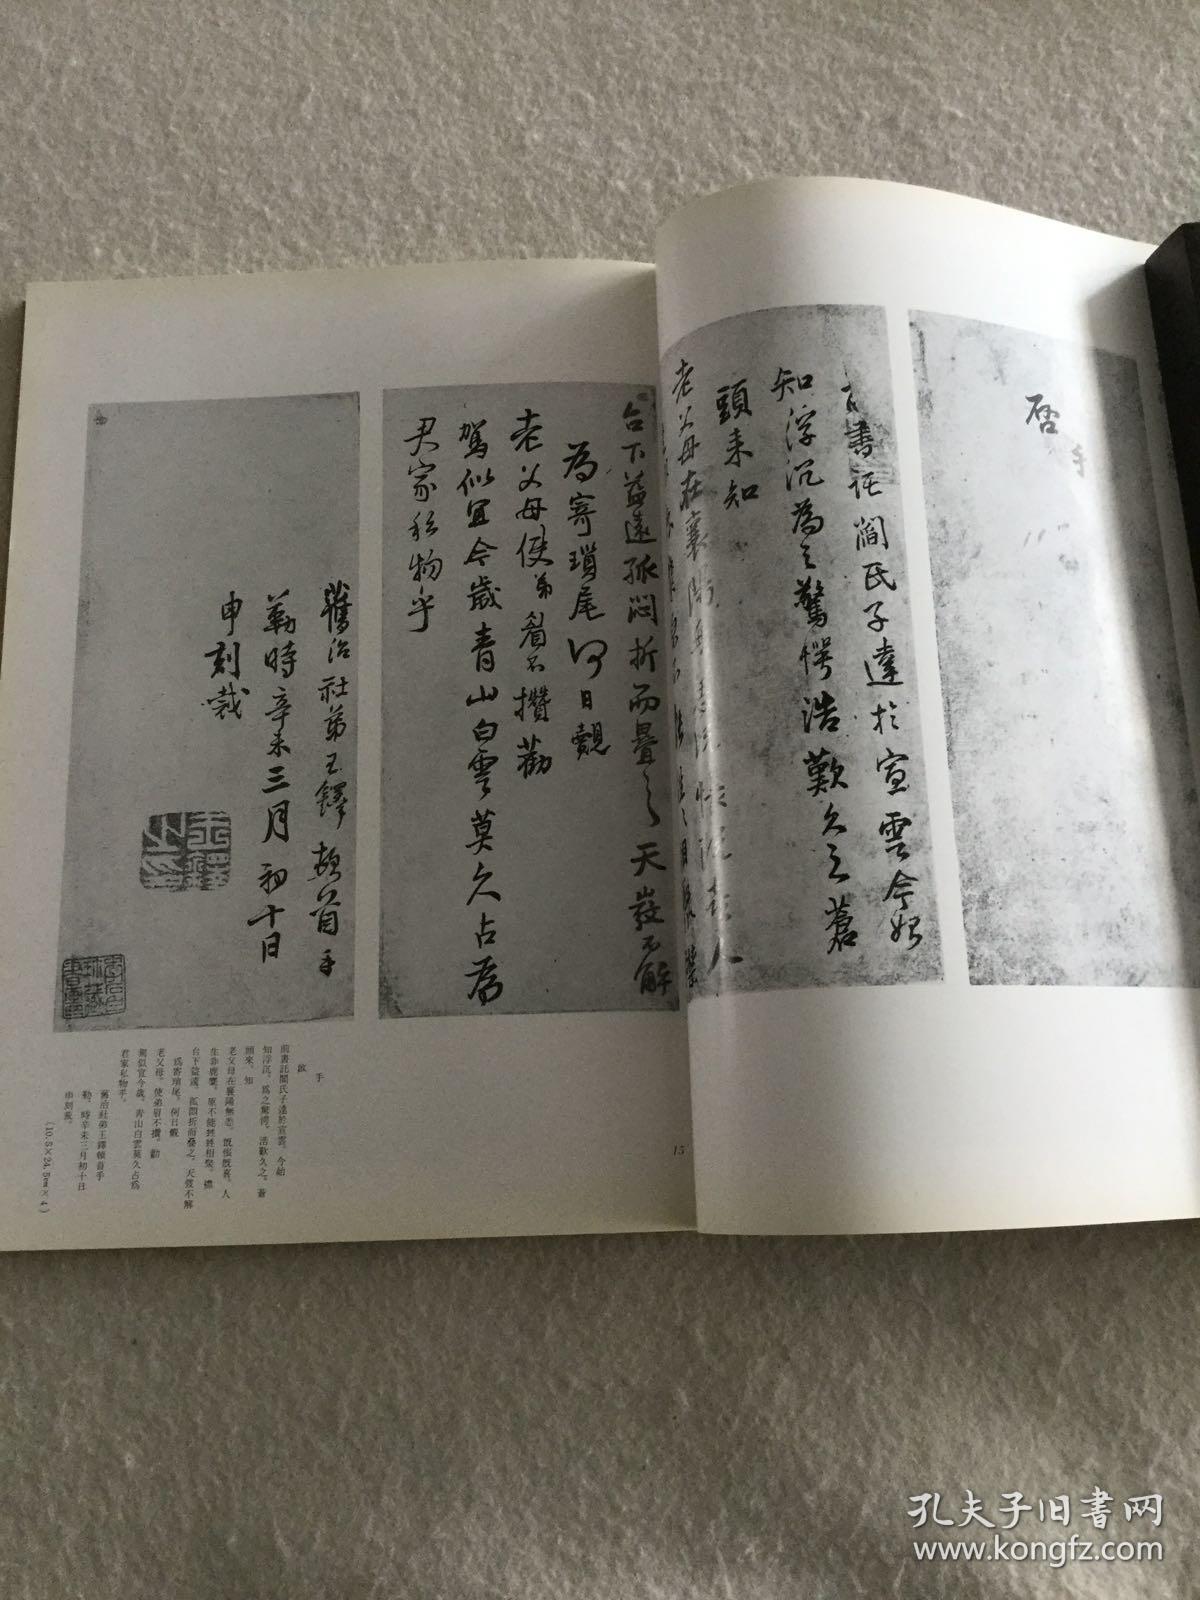 啓
手
書託閻氏子達於宣雲今始
知浮沉為之驚愕浩歎久之蒼
頭来知
老父母在襄陽無恙既悵既喜人
台下益遠孤悶折而疊之天弢不解
為寄瑣尾何日覯
老父母使弟眉不攢勸
駕似宜今歲青山白雲莫久占為
君家私物乎
舊治社弟王鐸頓首手
勒時辛未三月初十日
申刻裁
王鐸之印
啟
手
前書託閻氏子達於宣雲。今始
知浮沉。爲之驚愕。浩歎久之。蒼
頭來。知
老父母在襄陽無恙。既悵既喜。人
生非鹿麋。原不能
台下益遠。孤悶折而疊之。天弢不解
爲寄瑣尾。何日覯
老父母。使弟眉不攢。勸
駕似宜今歲。青山白雲莫久占爲
君家私物乎。
舊治社弟王鐸頓首手
勒。時辛未三月初十日
申刻裁。
15
孔夫子旧书网
www.kongfz.com